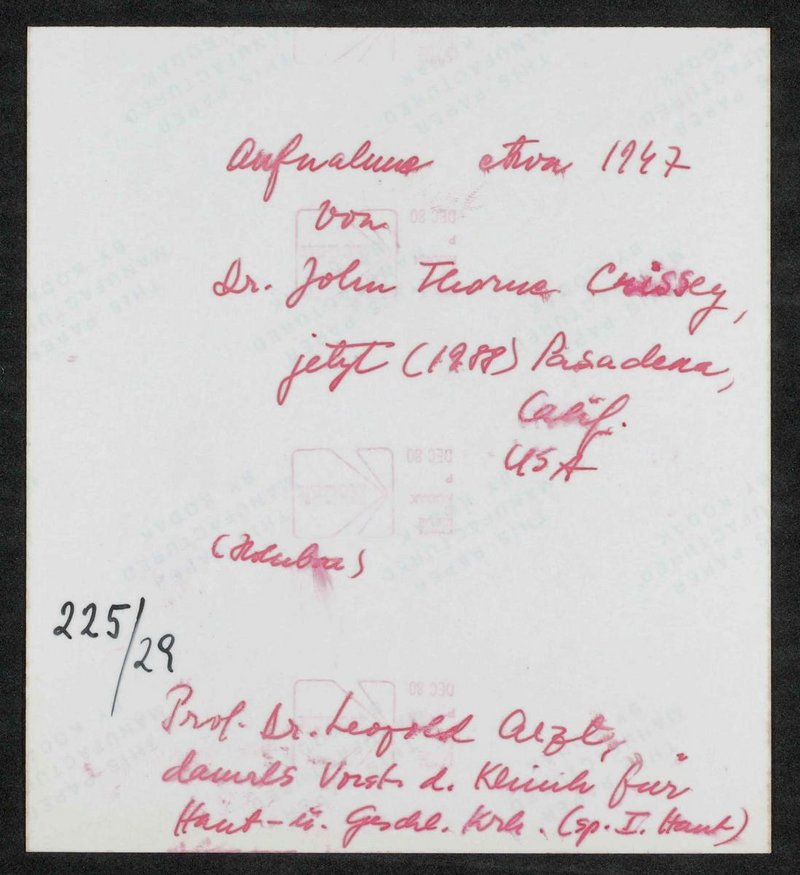 Aufnahme etwa 1947
von
Dr. John Thorne Crissey,
jetzt (1988) Pasadena,
Calif.
USA
(Holubar)
225/29
Prof. Dr. Leopold Arzt,
damals Vorst. d. Klinik für
Haut- u. Geschl. Krh. (sp. I. Haut)
DEC 80
KODAK
THIS PAPER
MANUFACTURED
BY KODAK